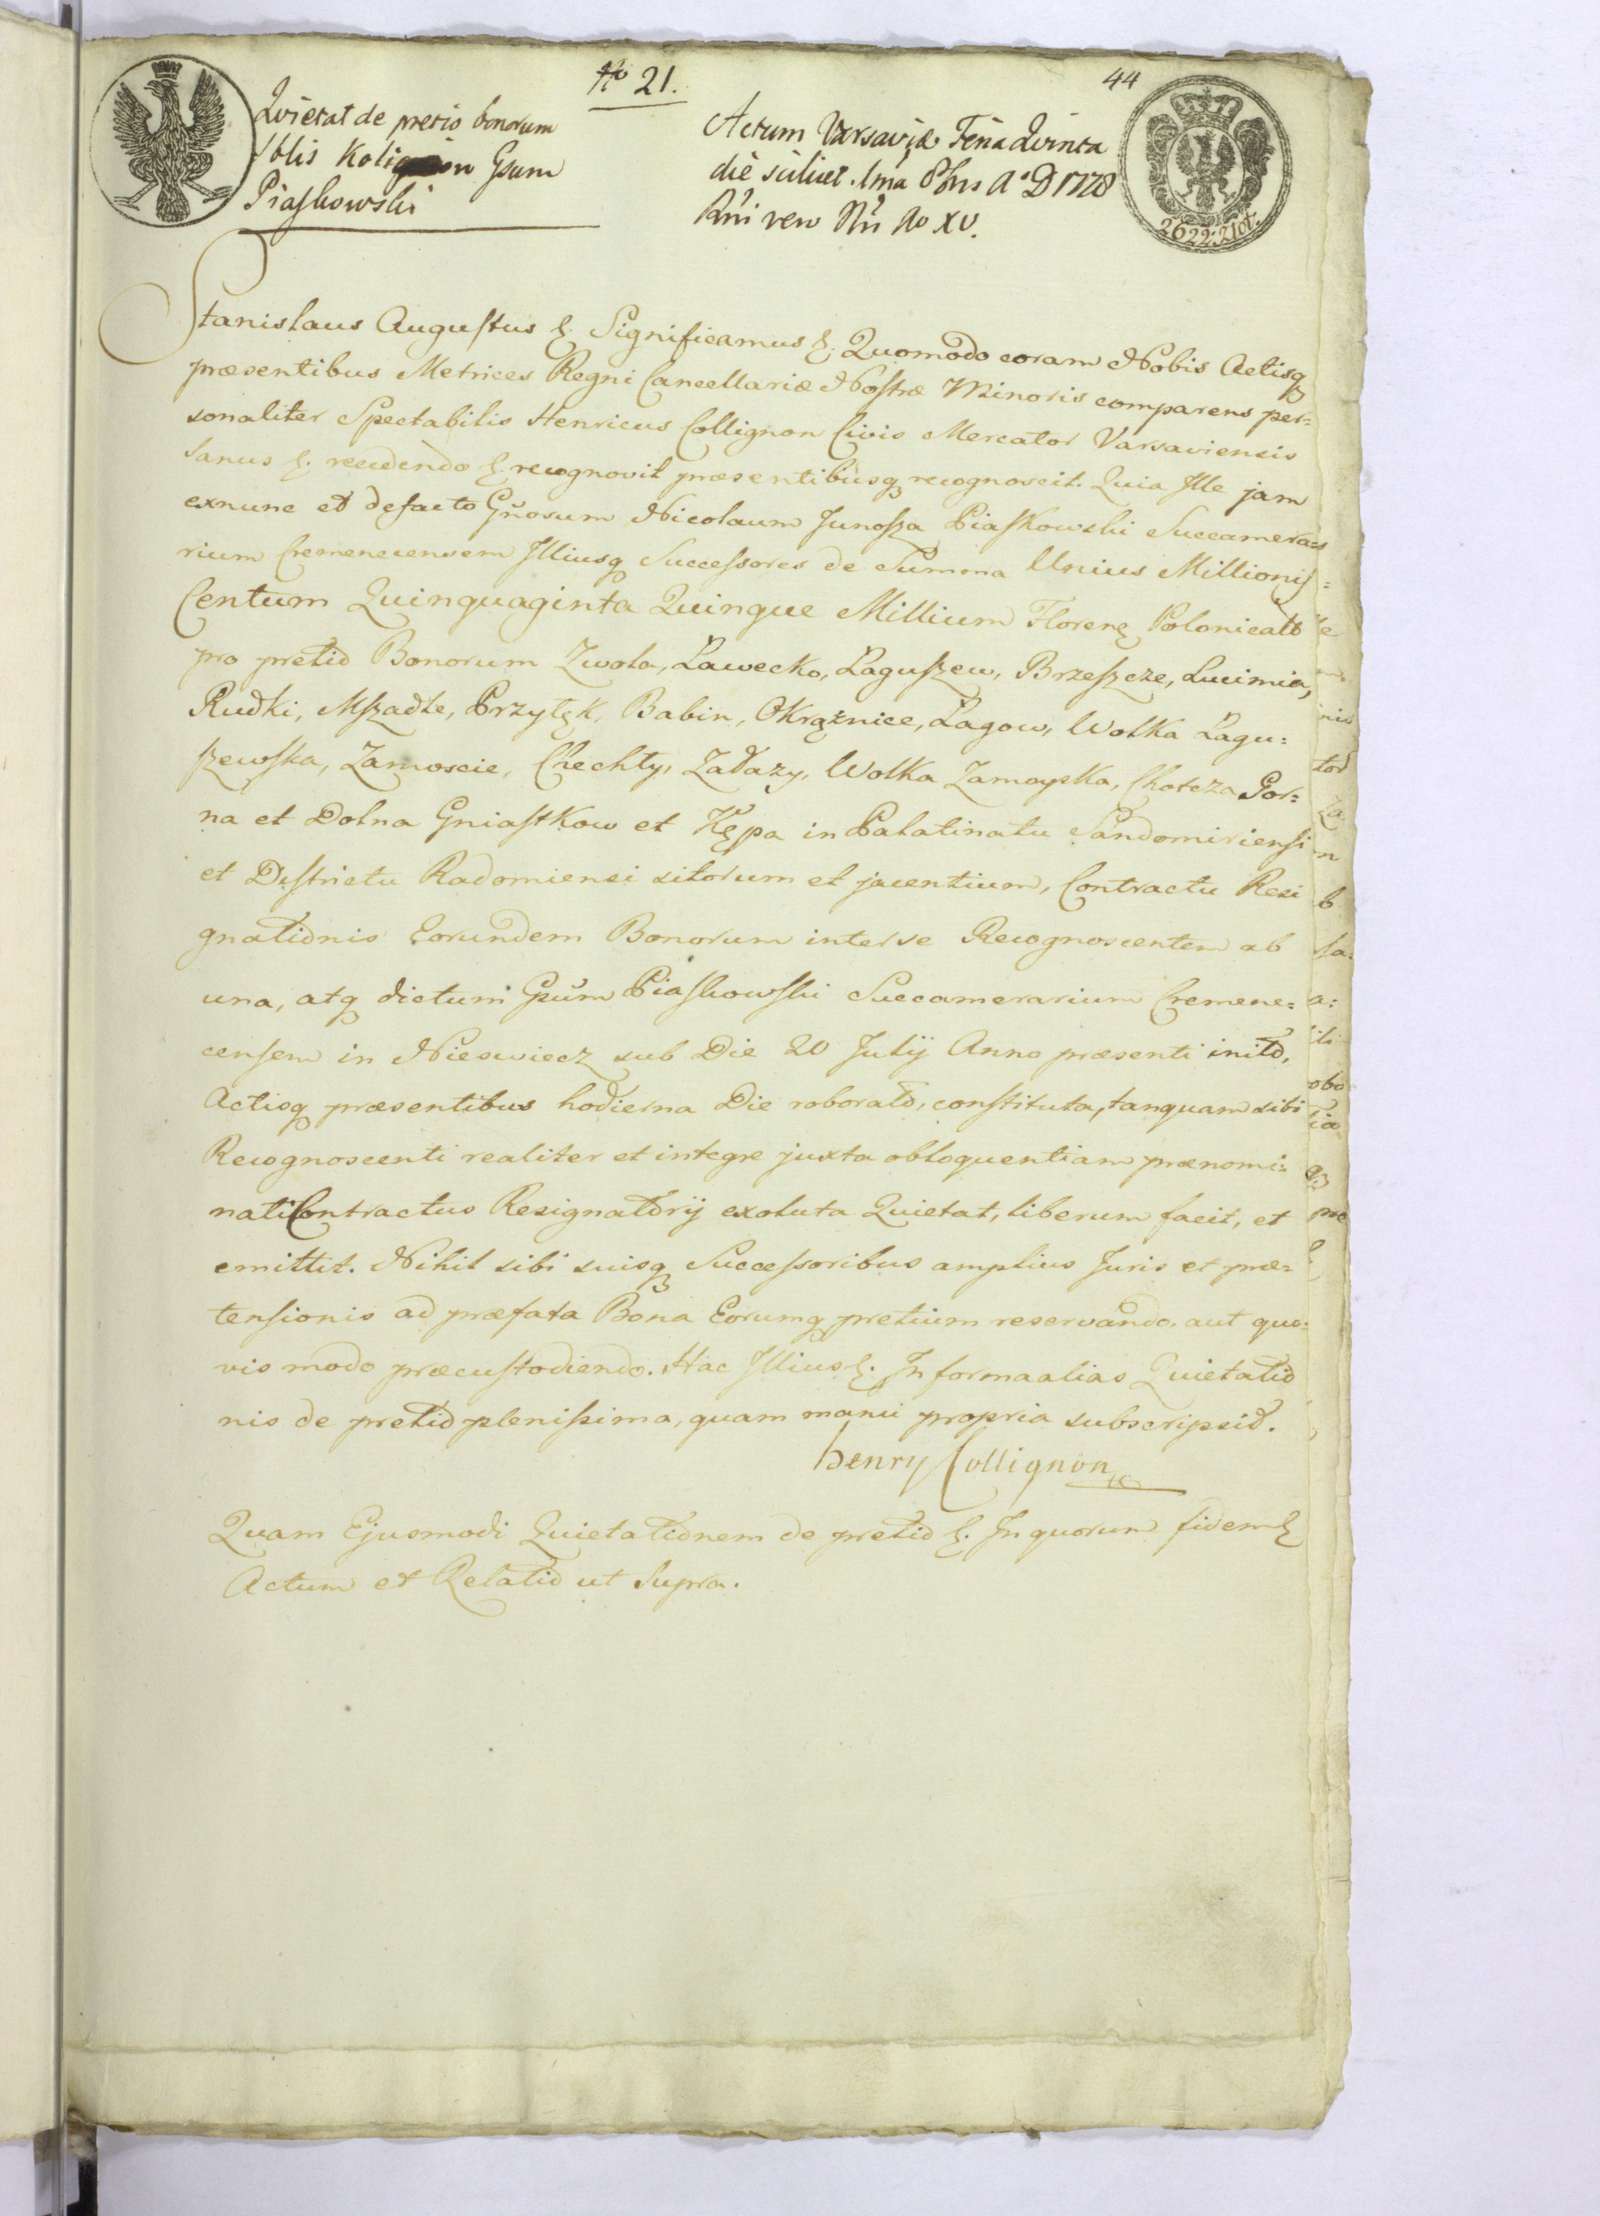 No 21.
44
Qvietat de pretio bonorum
Sblis Kolignon Gsum
Piaskowski
Actum Varsaviæ Feria Qvinta
die scilicet 1ma 8bris A° D 1778
Rni vero Nri Ao XV.
26 22: Zlot.
Stanislaus Augustus &. Significamus &. Quomodo coram Nobis Actisq
præsentibus Metrices Regni Cancellariæ Nostræ Minoris comparens per=
sonaliter Spectabilis Henricus Collignon Civis Mercator Varsaviensis
Sanus &. recedendo &. recognovit præsentibusq recognoscit. Quia Ille jam
exnunc et defacto Gnosum Nicolaum Junosza Piaskowski Succamera=
rium Cremenecensem Illiusq Successores de Summa Unius Millionis
Centum Quinquaginta Quingue Millium Floren Polonicalō
pro pretio Bonorum Zwola, Ławecko, Łaguszew, Brzeszcze, Lucimia,
Rudki, Mszadłe, Przyłęk, Babin, Okrężnice, Łagow, Wolka Łagu=
szewska, Zamoscie, Chechły, Załazy, Wolka Zamoyska, Chotcza Gor=
na et Dolna Gniastkow et Kępa in Palatinatu Sandomiriensi
et Districtu Radomiensi sitorum et jacentium, Contractu Resi
gnationis Eorundem Bonorum inter se Recognoscentem ab
una, atq dictum Gsum Piaskowski Succamerarium Cremene=
censem in Nieswiecz sub Die 20 Julij Anno præsenti inito,
Actisq præsentibus hodierna Die roborato, constituta, tanquam sibi
Recognoscenti realiter et integre juxta obloquentiam prænomi=
nati Contractus Resignatorij exoluta Quietat, liberum facit, et
emittit. Nihil sibi suisq Successoribus amplius Juris et præ=
tensionis ad præfata Bona Eorumq pretium reservando, aut quo=
vis modo præcustodiendo. Hac Illius &. In forma alias Quietatio
nis de pretio plenissima, quam manu propria subscripsit.
henry Collignon
Quam Ejusmodi Quietationem de pretio &. In quorum fidem &
Actum et Relatio ut Supra.